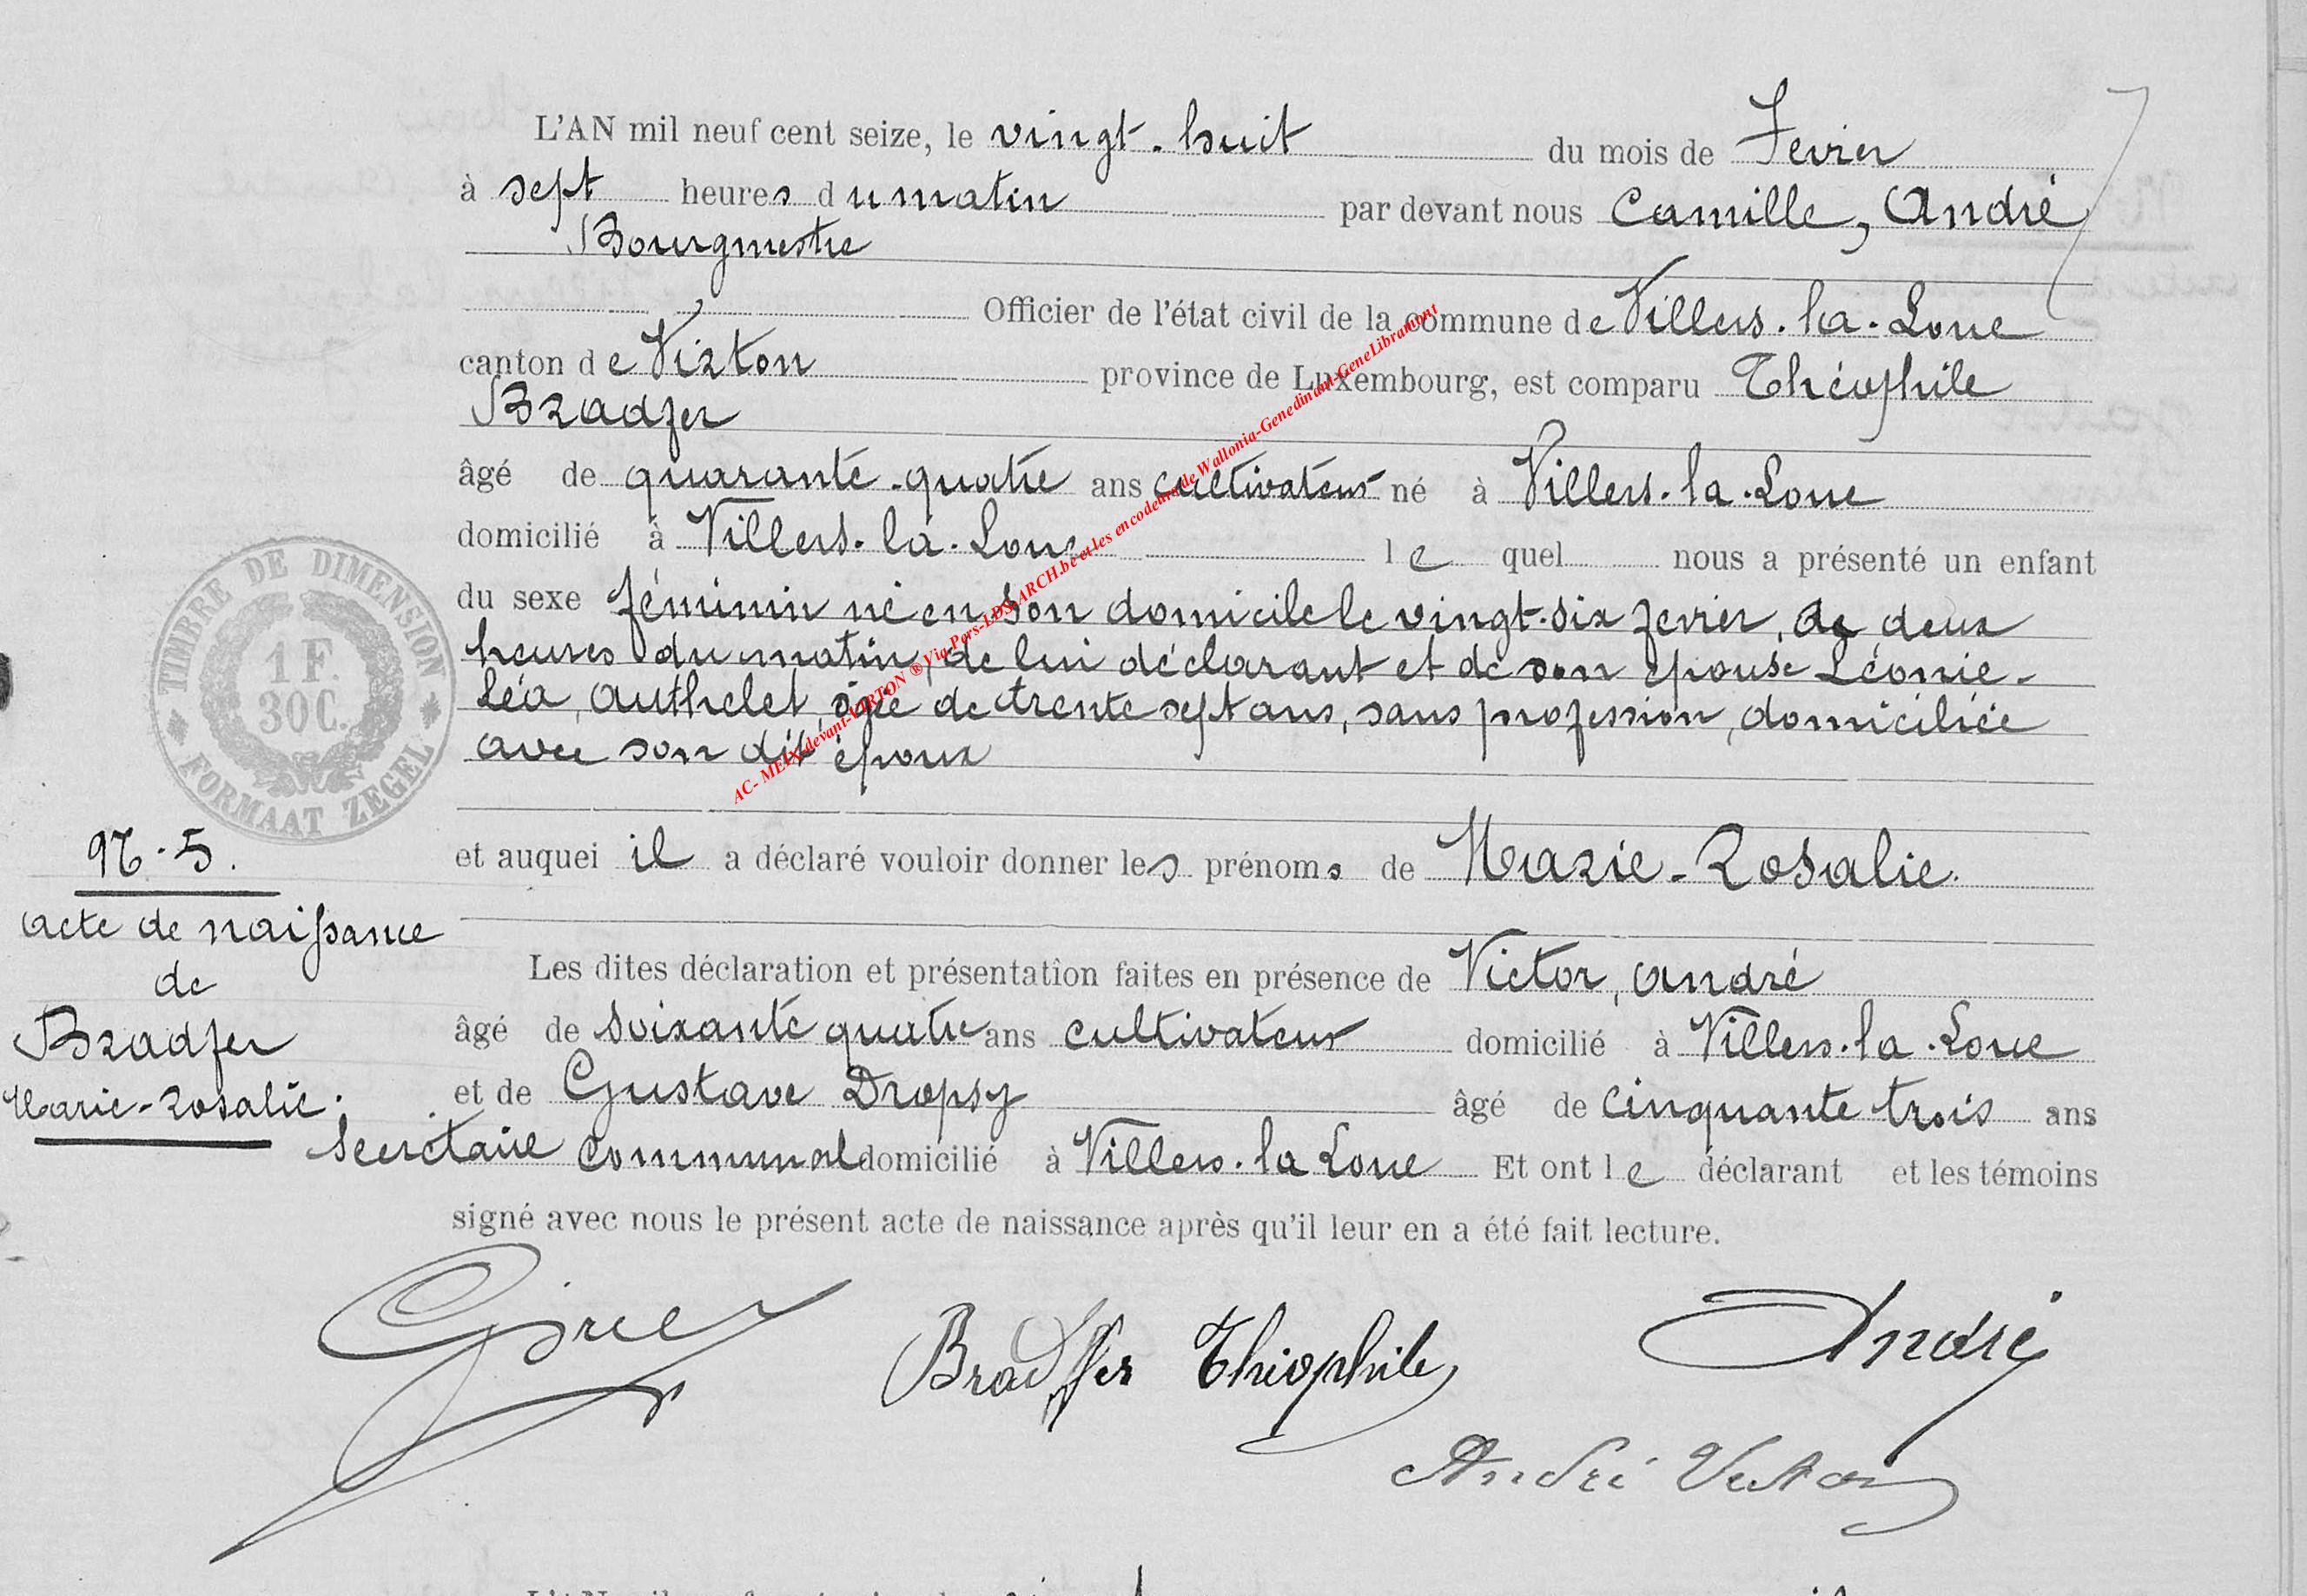 L'AN mil neuf cent seize, le vingt-huit du mois de Fevrier
à sept heures du matin par devant nous Camille, André
Bourgmestre
Officier de l'état civil de la commune de Villers-la-Loue
canton de Virton province de Luxembourg, est comparu Théophile
Bradfer
âgé de quarante-quatre ans cultivateur né à Villers-la-Loue
domicilié à Villers-la-Loue le quel nous a présenté un enfant
du sexe féminin né en son domicile le vingt-six fevrier, de deux
heures du matin, de lui déclarant et de son épouse Léonie-
Léa, Authelet, âgée de trente sept ans, sans profession, domiciliée
avec son dit époux
et auquel il a déclaré vouloir donner les prénoms de Marie-Rosalie.
Les dites déclaration et présentation faites en présence de Victor, André
âgé de soixante quatre ans cultivateur domicilié à Villers-la-Loue
et de Gustave Dropsy âgé de cinquante trois ans
secrétaire communal domicilié à Villers-la Loue Et ont le déclarant et les témoins
signé avec nous le présent acte de naissance après qu'il leur en a été fait lecture.
Bradffer Théophile
André
André Victor
TIMBRE DE DIMENSION
1 F.
30 C.
FORMAAT ZEGEL
Acte de naissance
de
Bradfer
Marie-Rosalie.
AC- MEIX-devant-VIRTON ® Via Pers-LDS-ARCH.be et les encodeurs de Wallonia-Genedinant-GeneLibramont